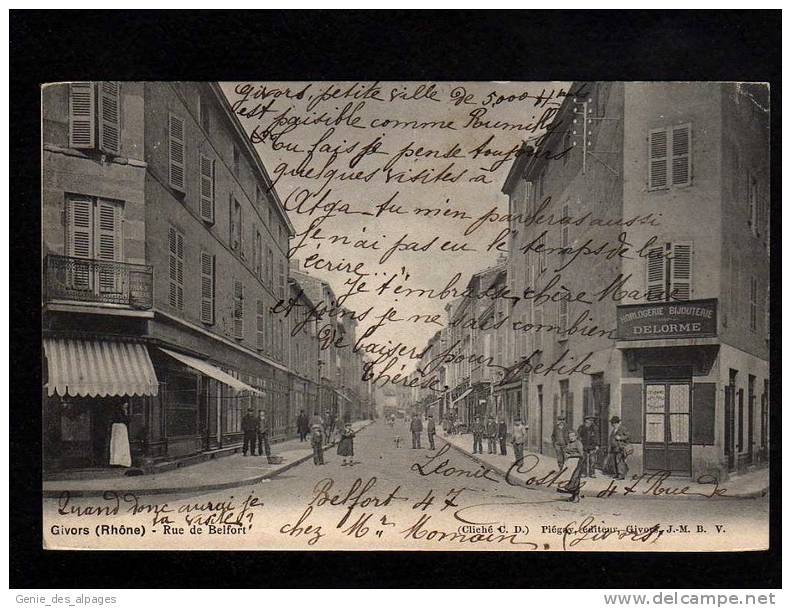 Givors, petite ville de 5000 Hbts
est paisible comme Rumilly
Tu fais je pense toujours
quelques visites à
tu m'en parleras aussi
Je n'ai pas eu le temps de lui
écrire...
Je t'embrasse, chère Marie
je ne sais combien
de baisers pour petite
Thérèse.
HORLOGERIE BIJOUTERIE
DELORME
Léonie Coste, 47 Rue de
Belfort 47
chez Mr Momain (Givors)
Quand donc aurai je
ta visite?
Givors (Rhône) - Rue de Belfort
(Cliché C. D.) Piégay, éditeur, Givors, J.-M. B. V.
Genie_des_alpages
http://www.delcampe.net